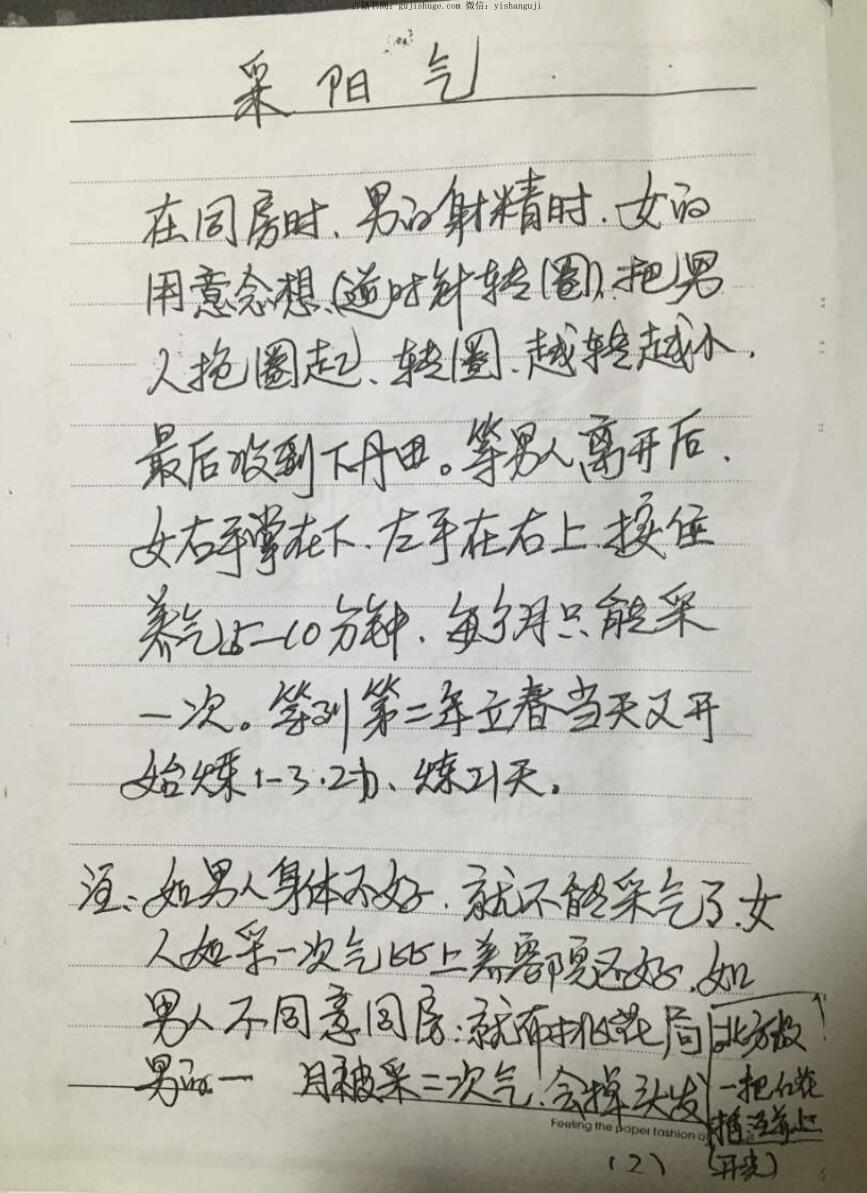 古籍书阁：gujishuge.com 微信：yishanguji
采阳气
在同房时、男的射精时、女的
用意念想、(逆)时针转(圈)、把男
人抱圈起、转圈、越转越小、
最后收到下丹田。等男人离开后、
女右手掌在下、左手在右上、按住
养气5—10分钟、每个月只能采
一次。等到第二年立春当天又开
始炼1-3.2功、炼21天。
注：如男人身体不好、就不能采气了、女
人如采一次气比上美容院还好、如
男人不同意同房：就布桃花局
男的一 月被采二次气、会掉头发
北方放
一把红花
插
(开光)
Feeling the paper fashion
(2)